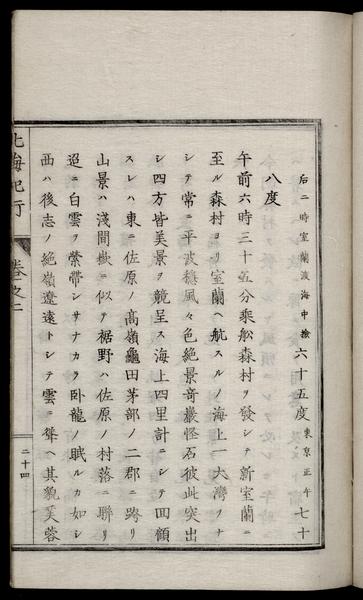 后二時室蘭渡海中檢六十五度東京正午七十
八度
午前六時三十五分乘船森村ヲ發シテ新室蘭ニ
至ル森村ヨリ室蘭ヘ航スルノ海上一大灣ヲナ
シテ常ニ平波穩風々色絶景奇巖怪石彼此突出
シ四方皆美景ヲ競呈ス海上四里計ニシテ回顧
スレハ東ニ佐原ノ高嶺龜田茅部ノ二郡ニ跨リ
山景ハ淺間嶽ニ似テ裾野ハ佐原ノ村落ニ聯リ
迢ニ白雲ヲ縈帶シサナカラ臥龍ノ眠ルカ如シ
西ハ後志ノ絶嶺遼遠トシテ雲ニ聳ヘ其貌芙蓉
北海紀行
卷之二
二十四